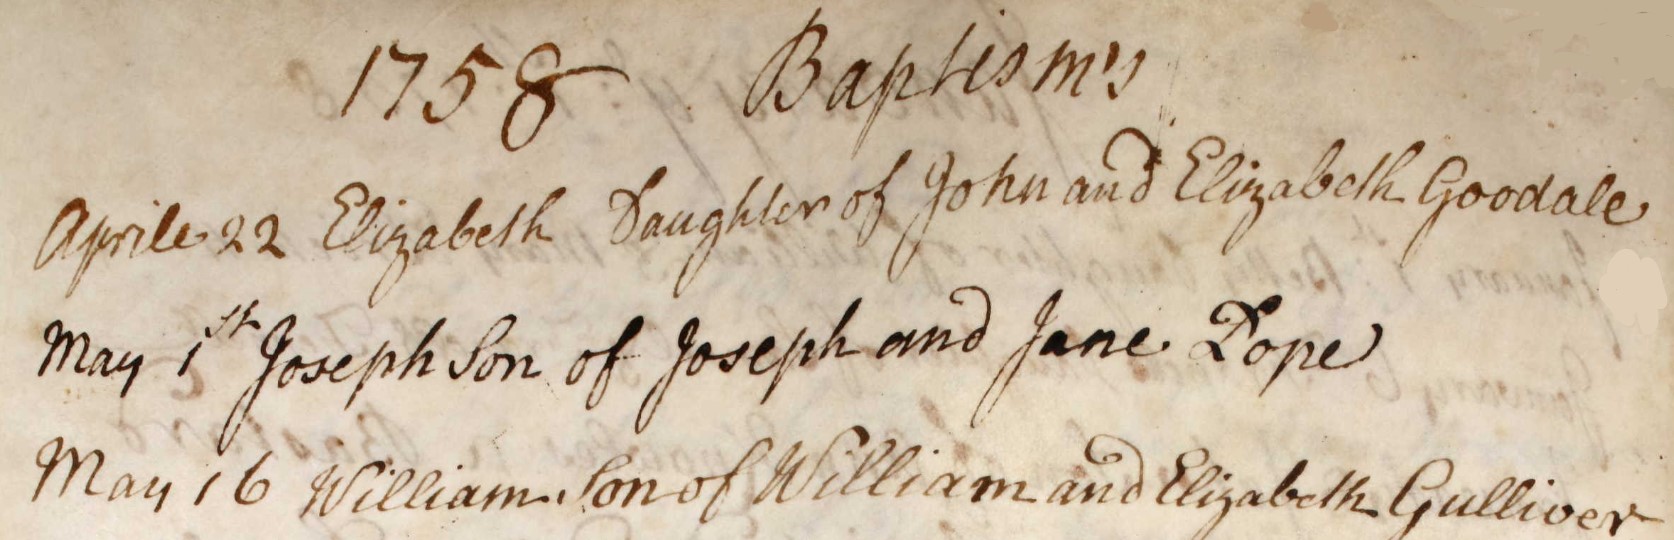 1758 Baptism's
Aprile 22 Elizabeth Daughter of John and Elizabeth Goodale
May 1st Joseph Son of Joseph and Jane Dope
May 16 William Son of William and Elizabeth Gulliver